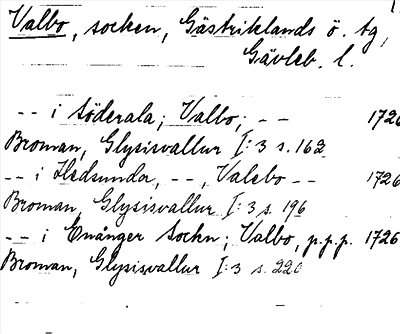 Valbo, socken, Gästriklands ö. tg,
Gävleb. l.
-- i Söderala; Valbo; -- 1726
Broman, Glysisvallur I:3 s. 162
-- i Hedsunda, --, Valebo -- 1726
Broman, Glysisvallur I:3 s. 196
-- i Enånger Sockn; Valbo, p.p.p. 1726
Broman, Glysisvallur I:3 s. 220